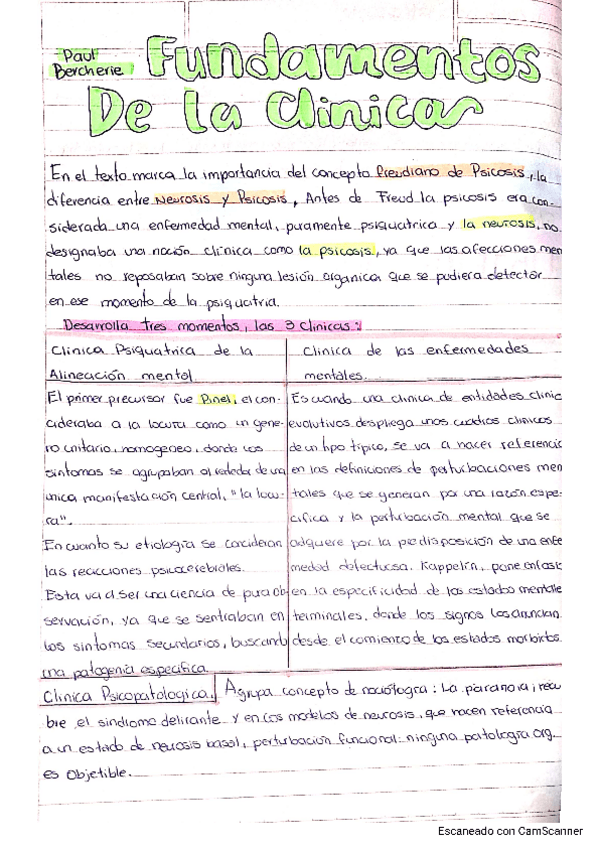 Paul
Bercherie
Fundamentos
De la Clinica
En el texto marca la importancia del concepto freudiano de Psicosis, la
diferencia entre Neurosis y Psicosis, Antes de Freud la psicosis era con-
siderada una enfermedad mental, puramente psiquiatrica y la neurosis, no
designaba una noción clínica como la psicosis, ya que las afecciones men
tales no reposaban sobre ninguna lesión organica que se pudiera detector
en ese momento de la psiquiatria.
Desarrolla tres momentos, las 3 Clinicas:
Clínica Psiquatrica de la
Alineación mental
El primer precursor fue Pinel, el con-
cideraba a la locura como un géne-
ro unitario, homogeneo, donde los
sintomas se agrupaban alrededor de una
unica manifestación central, "la locu-
ra".
En cuanto su etiología se concideran
las reacciones psicocerebrales.
Esta va a ser una ciencia de pura ob
servación, ya que se sentraban en
los sintomas secundarios, buscando
una patogenia especifica.
Clínica de las enfermedades
mentales.
Es cuando una clinica de entidades clinic
evolutivos despliega unos cuadros clinicos
de un tipo típico, se va a hacer referencia
en las definiciones de perturbaciones men
tales que se generan por una razón espe-
cifica y la perturbación mental que se
adquiere por la predisposición de una enfe
medad defectuosa. Kappelin, pone enfasis
en la especificidad de los estados mentale
terminales, donde los signos los anuncian
desde el comiento de los estados morbidos
Clinica Psicopatologica. Agrupa concepto de nosología: La paranoia, recu
bre el sindrome delirante y en los modelos de neurosis, que hacen referencia
a un estado de neurosis basal, perturbación funcional: ninguna patología org.
es objetible.
Escaneado con CamScanner